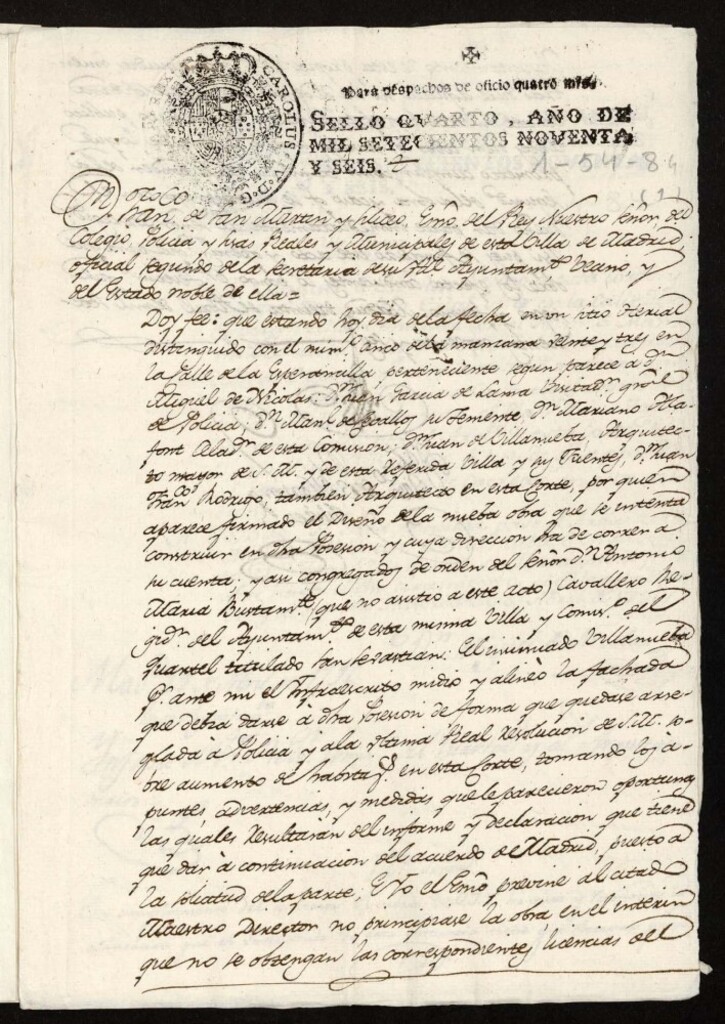 CAROLUS IV D G
Para despachos de oficio quatro mrs.
SELLO QUARTO, AÑO DE
MIL SETECIENTOS NOVENTA
Y SEIS.
1-54-84
(2)
Fran.co de San Martin y Eliceo, Esno. del Rey Nuestro Señor del
Colegio, Policia y Reales y Municipales de esta Villa de Madrid,
oficial segundo de la Secretaria de su Ayuntam.to Vecino, y
del Estado noble de ella=
Doy fee: que estando hoy dia de la fecha en un sitio Herial
distinguido con el num.o cinco de la manzana veinte y tres en
la Calle de la Esperancilla, perteneciente segun parece a D.n
Miguel de Nicolas: D.n Juan Garcia de Lama Visitad.r gral
de Policia; D.n Man.l de Zeballos su Temente D.n Mariano Ma-
font Celad.r de esta Comision; D.n Juan de Villanueba, Arquitec-
to mayor de S.M. y de esta referida Villa y sus Fuentes, D.n Juan
Fran.co Rodrigo, tambien Arquitecto en esta Corte, por quien
aparece firmado el Diseño de la nueba obra que se intenta
construir en dha Posesion, y cuya direccion ha de correr a
su cuenta; y asi congregados de orden del señor D.n Antonio
Maria Bustam.te (que no asistio a este acto) Cavallero Re-
gid.r del Ayuntam.to de esta misma Villa y Comis.o del
Quartel titulado San Sebastian: El insinuado Villanueba
p.r ante mi el Infraescrito midio y alineò la fachada
que debia darse à dha Posesion de forma que quedase arre-
glada a Policia y a la ultima Real Resolucion de S.M. so-
bre aumento de habitac.s en esta Corte, tomando los a-
puntes, advertencias, y medidas que le parecieron oportunas
las quales resultaràn del informe y declaracion que tiene
que dar à continuacion del acuerdo de Madrid, puesto a
la solicitud de la parte; E Yo el Esno previne al citado
Maestro Director no principiase la obra, en el interin
que no se obtengan las correspondientes licencias del